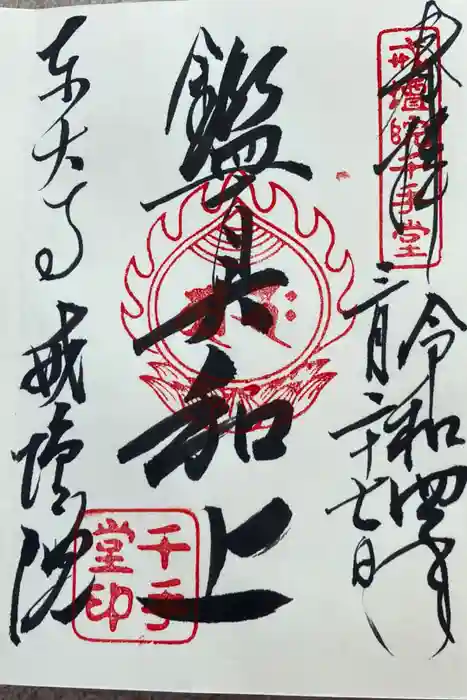 奉拝
戒壇院千手堂
令和四年
三月二十七日
鑑真和上
東大寺 戒壇院
千手堂印